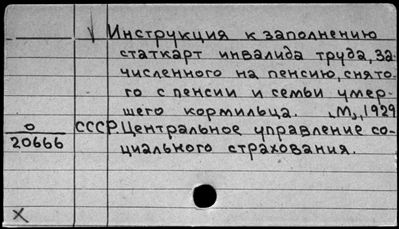 Инструкция к заполнению
статкарт инвалида труда, за-
численного на пенсию, снято-
го с пенсии и семьи умер-
шего кормильца. М., 1929
О
20666
СССР Центральное управление со-
циального страхования.
X